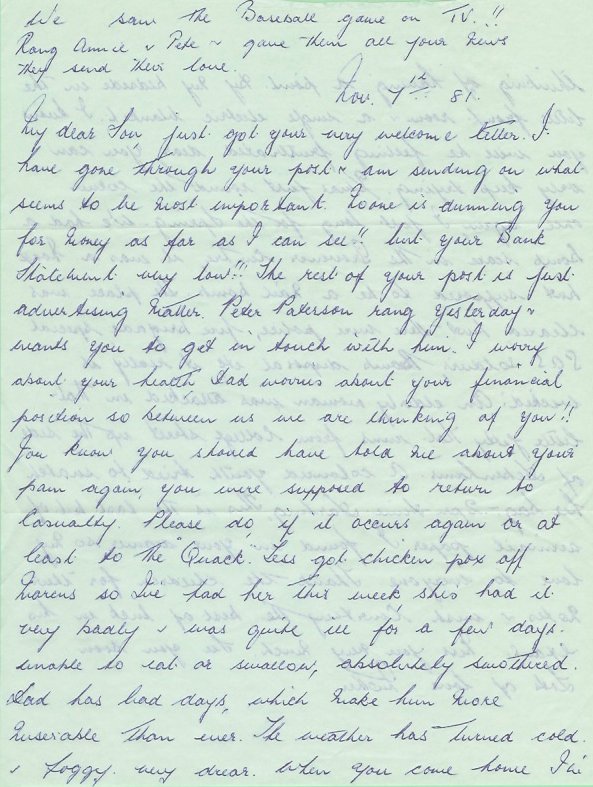 We saw the Baseball game on TV.!!
Rang Annie & Pete & gave them all your News
They send their love.
Nov. 7th 81.
My dear Lou, just got your very welcome letter. I
have gone through your post & am sending on what
seems to be most important. No one is dunning you
for money as far as I can see!! but your Bank
Statement very low!!! The rest of your post is just
advertising Matter. Peter Paterson rang yesterday &
wants you to get in touch with him. I worry
about your health Dad worries about your financial
position so between us we are thinking of you!!
You know you should have told me about your
pain again, you were supposed to return to
Casualty. Please do, if it occurs again or at
least to the "Quack." Tess got chicken pox off
so I've had her this week, she's had it
very badly & was quite ill for a few days.
unable to eat or swallow, absolutely smothered.
Dad has bad days, which make him more
miserable than ever. The weather has turned cold.
& foggy. very drear. When you come home I've